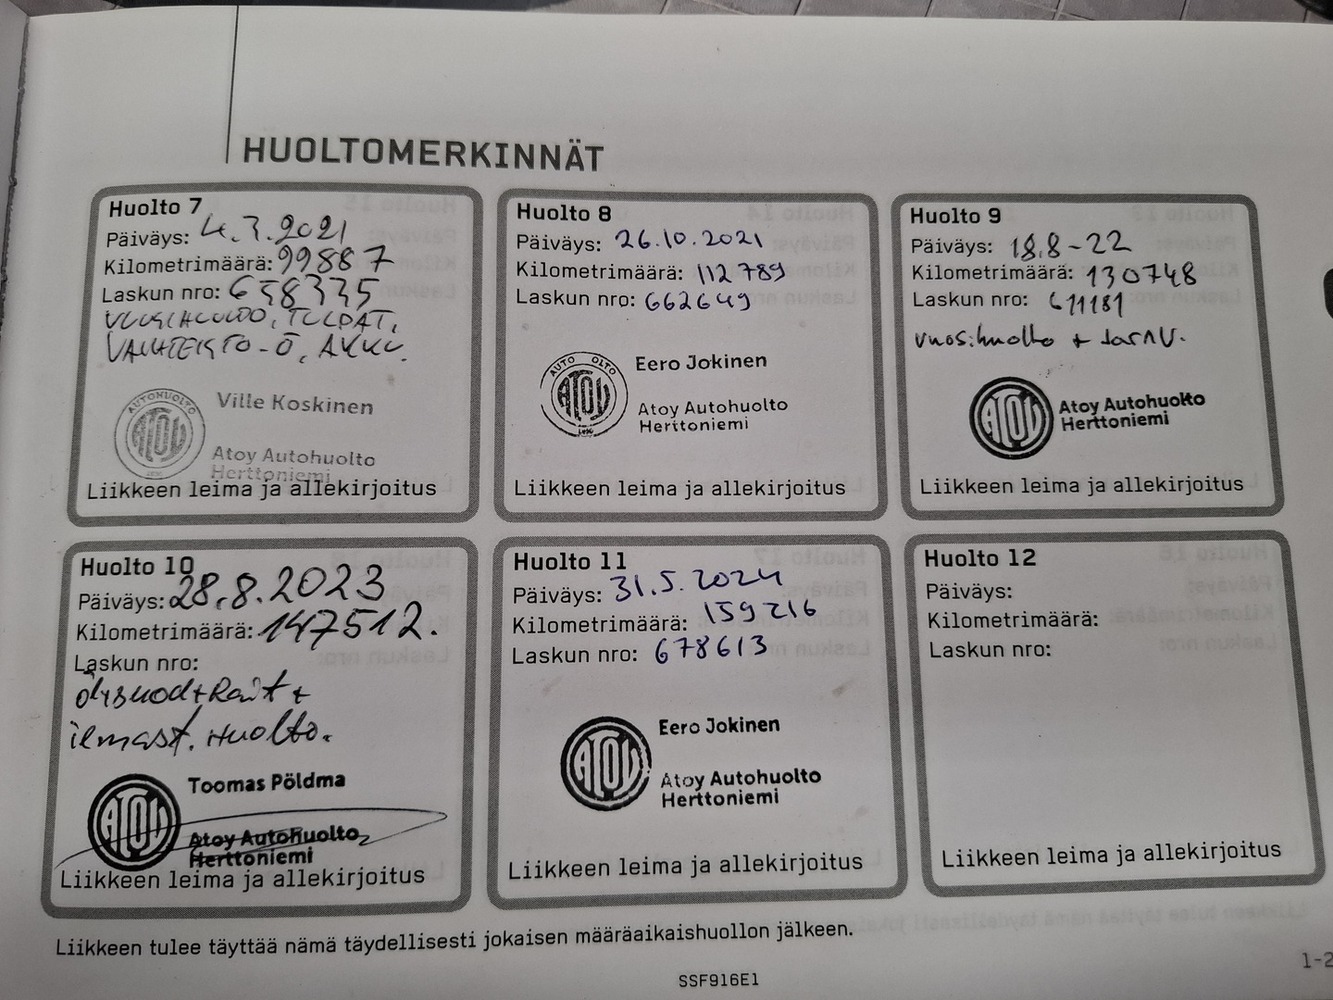 HUOLTOMERKINNÄT
Huolto 7
Päiväys: 4.3.2021
Kilometrimäärä: 99887
Laskun nro: 658335
VUOSIHUOLTO, TULPAT,
VAIHTEISTO-Ö, AKKU.
AUTOHUOLTO
ATOY
Ville Koskinen
Atoy Autohuolto
Herttoniemi
Liikkeen leima ja allekirjoitus
Huolto 8
Päiväys: 26.10.2021
Kilometrimäärä: 112789
Laskun nro: 662649
AUTO OLTO
ATOY
Eero Jokinen
Atoy Autohuolto
Herttoniemi
Liikkeen leima ja allekirjoitus
Huolto 9
Päiväys: 18.8-22
Kilometrimäärä: 130748
Laskun nro: 611181
vuosihuolto + JarNV.
ATOY
Atoy Autohuolto
Herttoniemi
Liikkeen leima ja allekirjoitus
Huolto 10
Päiväys: 28.8.2023
Kilometrimäärä: 147512.
Laskun nro:
ilmast. Huolto.
ATOY
Toomas Põldma
Atoy Autohuolto
Herttoniemi
Liikkeen leima ja allekirjoitus
Huolto 11
Päiväys: 31.5.2024
Kilometrimäärä: 159216
Laskun nro: 678613
ATOY
Eero Jokinen
Atoy Autohuolto
Herttoniemi
Liikkeen leima ja allekirjoitus
Huolto 12
Päiväys:
Kilometrimäärä:
Laskun nro:
Liikkeen leima ja allekirjoitus
Liikkeen tulee täyttää nämä täydellisesti jokaisen määräaikaishuollon jälkeen.
1-2
SSF916E1